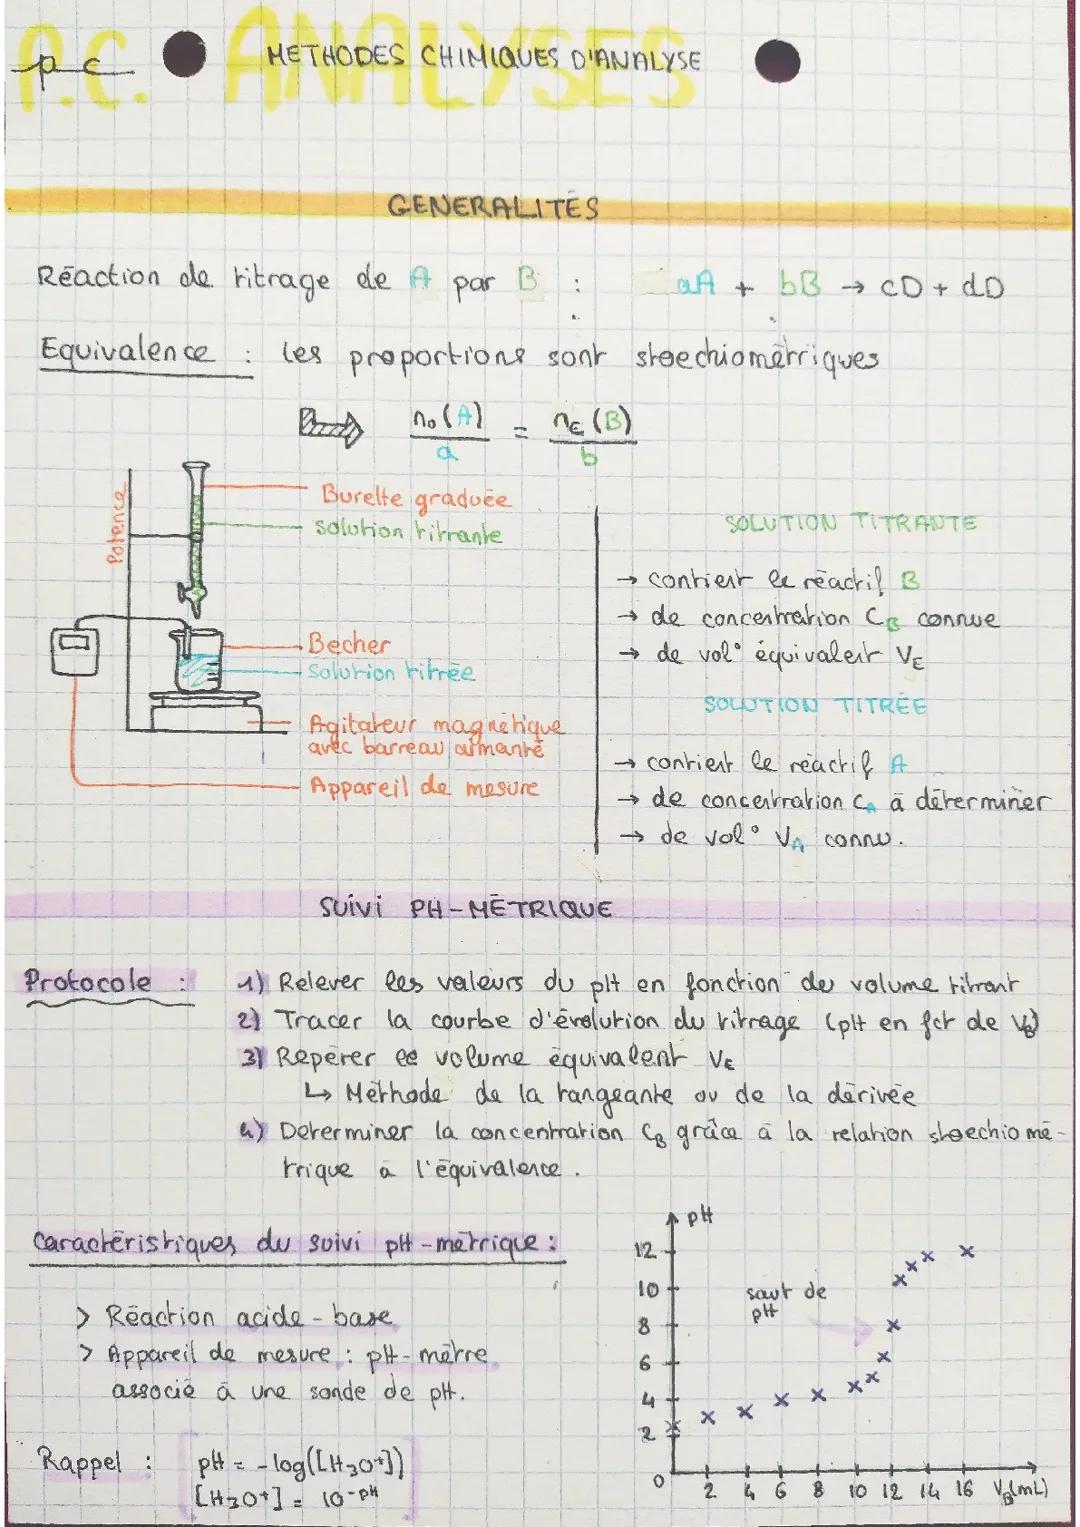 P.C. ANALYSES
p c METHODES CHIMIQUES D'ANALYSE
GENERALITÉS
Réaction de titrage de A par B : aA + bB → cD + dD
Equivalence : les proportions sont stoechiométriques
n₀(A) / a = nE(B) / b
Potence
Burette graduée
solution titrante
Becher
Solution titrée
Agitateur magnétique
avec barreau aimanté
Appareil de mesure
SOLUTION TITRANTE
→ contient le réactif B
→ de concentration CB connue
→ de vol° équivalent VE
SOLUTION TITRÉE
→ contient le réactif A
→ de concentration CA à déterminer
→ de vol° VA connu.
SUIVI PH-MÉTRIQUE
Protocole :
1) Relever les valeurs du pH en fonction du volume titrant
2) Tracer la courbe d'évolution du titrage (pH en fct de VB)
3) Repérer le volume équivalent VE
↳ Méthode de la tangeante ou de la dérivée
4) Determiner la concentration CB grâce à la relation stoechiomé-
trique à l'équivalence.
Caractéristiques du suivi pH-métrique :
> Réaction acide-base
> Appareil de mesure : pH-mètre
associé à une sonde de pH.
Rappel : pH = -log([H₃O⁺])
[H₃O⁺] = 10^-pH
pH
12
10
8
6
4
2
0
saut de
pH
2 4 6 8 10 12 14 16 VB(mL)